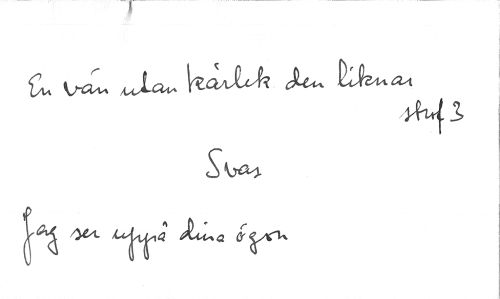 En vän utan kärlek den liknar
strof 3
Svar
Jag ser uppå dina ögon